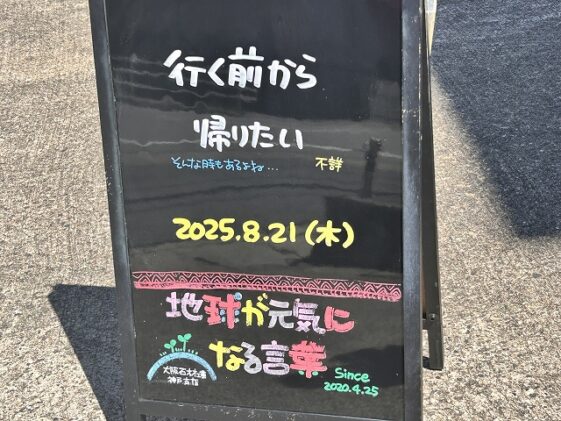 行く前から
帰りたい
そんな時もあるよね... 不詳
2025.8.21(木)
地球が元気に
なる言葉
大阪石材工業
神戸支店
Since
2020.4.25